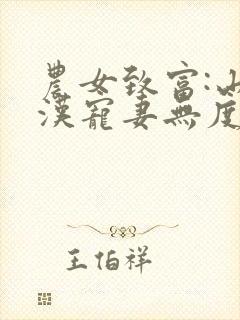 農女致富:山
漢寵妻無度
王伯祥